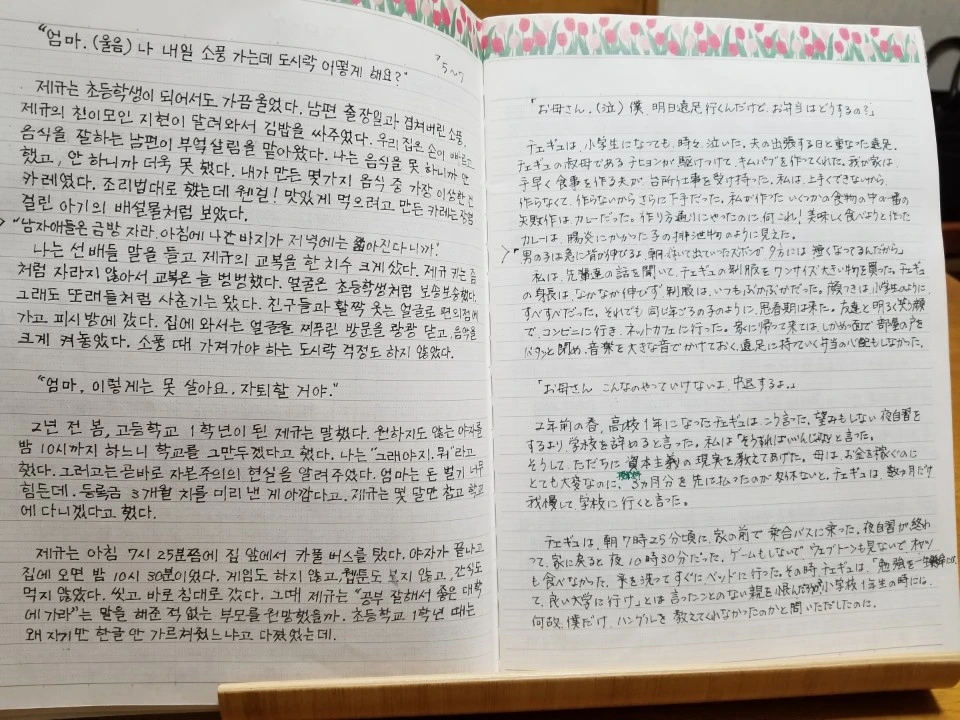 "엄마. (울음) 나 내일 소풍 가는데 도시락 어떻게 해요?"
제규는 초등학생이 되어서도 가끔 울었다. 남편 출장일과 겹쳐버린 소풍.
제규의 친이모인 지현이 달려와서 김밥을 싸주었다. 우리 집은 손이 빠르고
음식을 잘하는 남편이 부엌살림을 맡아왔다. 나는 음식을 못 하니까 안
했고, 안 하니까 더욱 못 했다. 내가 만든 몇가지 음식 중 가장 이상한 건
카레였다. 조리법대로 했는데 웬걸! 맛있게 먹으려고 만든 카레는 장염
걸린 아기의 배설물처럼 보였다.
"남자애들은 금방 자라. 아침에 나간 바지가 저녁에는 짧아진다니까."
나는 선배들 말을 듣고, 제규의 교복을 한 치수 크게 샀다. 제규 키는 좀
처럼 자라지 않아서 교복은 늘 벙벙했다. 얼굴은 초등학생처럼 보송보송했다.
그래도 또래들처럼 사춘기는 왔다. 친구들과 활짝 웃는 얼굴로 편의점에
가고 피시방에 갔다. 집에 와서는 얼굴을 찌푸린 방문을 쾅쾅 닫고, 음악을
크게 켜놓았다. 소풍 때 가져가야 하는 도시락 걱정도 하지 않았다.
"엄마, 이렇게는 못 살아요. 자퇴할 거야."
2년 전 봄, 고등학교 1학년이 된 제규는 말했다. 원하지도 않는 야자를
밤 10시까지 하느니 학교를 그만두겠다고 했다. 나는 "그래야지. 뭐"라고
했다. 그러고는 곧바로 자본주의의 현실을 알려주었다. 엄마는 돈 벌기 너무
힘든데. 등록금 3개월 치를 미리 낸 게 아깝다고. 제규는 몇 달만 참고 학교
에 다니겠다고 했다.
제규는 아침 7시 25분쯤에 집 앞에서 카풀 버스를 탔다. 야자가 끝나고
집에 오면 밤 10시 30분이었다. 게임도 하지 않고, 웹툰도 보지 않고, 간식도
먹지 않았다. 씻고 바로 침대로 갔다. 그때 제규는 "공부 잘해서 좋은 대학
에 가라"는 말을 해준 적 없는 부모를 원망했을까. 초등학교 1학년 때는
왜 자기만 한글 안 가르쳐줬느냐고 따졌었는데.
75~7
「お母さん、(泣) 僕、明日遠足行くんだけど、お弁当はどうするの?」
チェギュは、小学生になっても、時々、泣いた。夫の出張する日と重なった遠足。
チェギュの叔母であるチヒョンが駆けつけて、キムパプを作ってくれた。我が家は、
手早く食事を作る夫が 台所仕事を受け持った。私は、上手くできないから
作らなくて、作らないからさらに下手だった。私が作った いくつかの食物の中の一番の
失敗作は、カレーだった。作り方通りにやったのに何これ! 美味しく食べようと作った
カレーは、腸炎にかかった子の排泄物のように見えた。
「男の子は急に背が伸びるよ。朝、はいて出ていったズボンが夕方には短くなってるんだから」
私は、先輩達の話を聞いて、チェギュの制服をワンサイズ大きい物を買った。チェギュ
の身長は、なかなか伸びず 制服は、いつもぶかぶかだった。顔つきは小学生のように、
すべすべだった。それでも 同じ年ごろの子のように、思春期は来た。友達と明るく笑う顔
で、コンビニに行き、ネットカフェに行った。家に帰って来ては、しかめ面で部屋の戸を
バタッと閉め、音楽を大きな音でかけておく。遠足に持っていく弁当の心配もしなかった。
「お母さん こんなのやっていけないよ、中退するよ。」
2年前の春、高校1年になったチェギュは、こう言った。望みもしない 夜自習を
するより、学校を辞めると言った。私は「そうすればいいんじゃない」と言った。
そうして、ただちに 資本主義の 現実を教えてあげた。母は、お金を稼ぐのに
とても大変なのに、3ヵ月分を 先に払ったのが 勿体ないと。チェギュは、数ヶ月だけ
我慢して、学校に行くと言った。
チェギュは、朝7時25分頃に、家の前で 乗合バスに乗った。夜自習が終わ
って、家に来ると 夜10時30分だった。ゲームもしないで ウェブトーンも見ないで、オヤツ
も食べなかった。体を洗って すぐにベッドに行った。その時、チェギュは、「勉強を一生懸命にし
て、良い大学に行け」とは 言ったことのない親を恨んだろうか。小学校1年生の時には、
何故、僕だけ、ハングルを 教えてくれなかったのかと問いただしたのに。